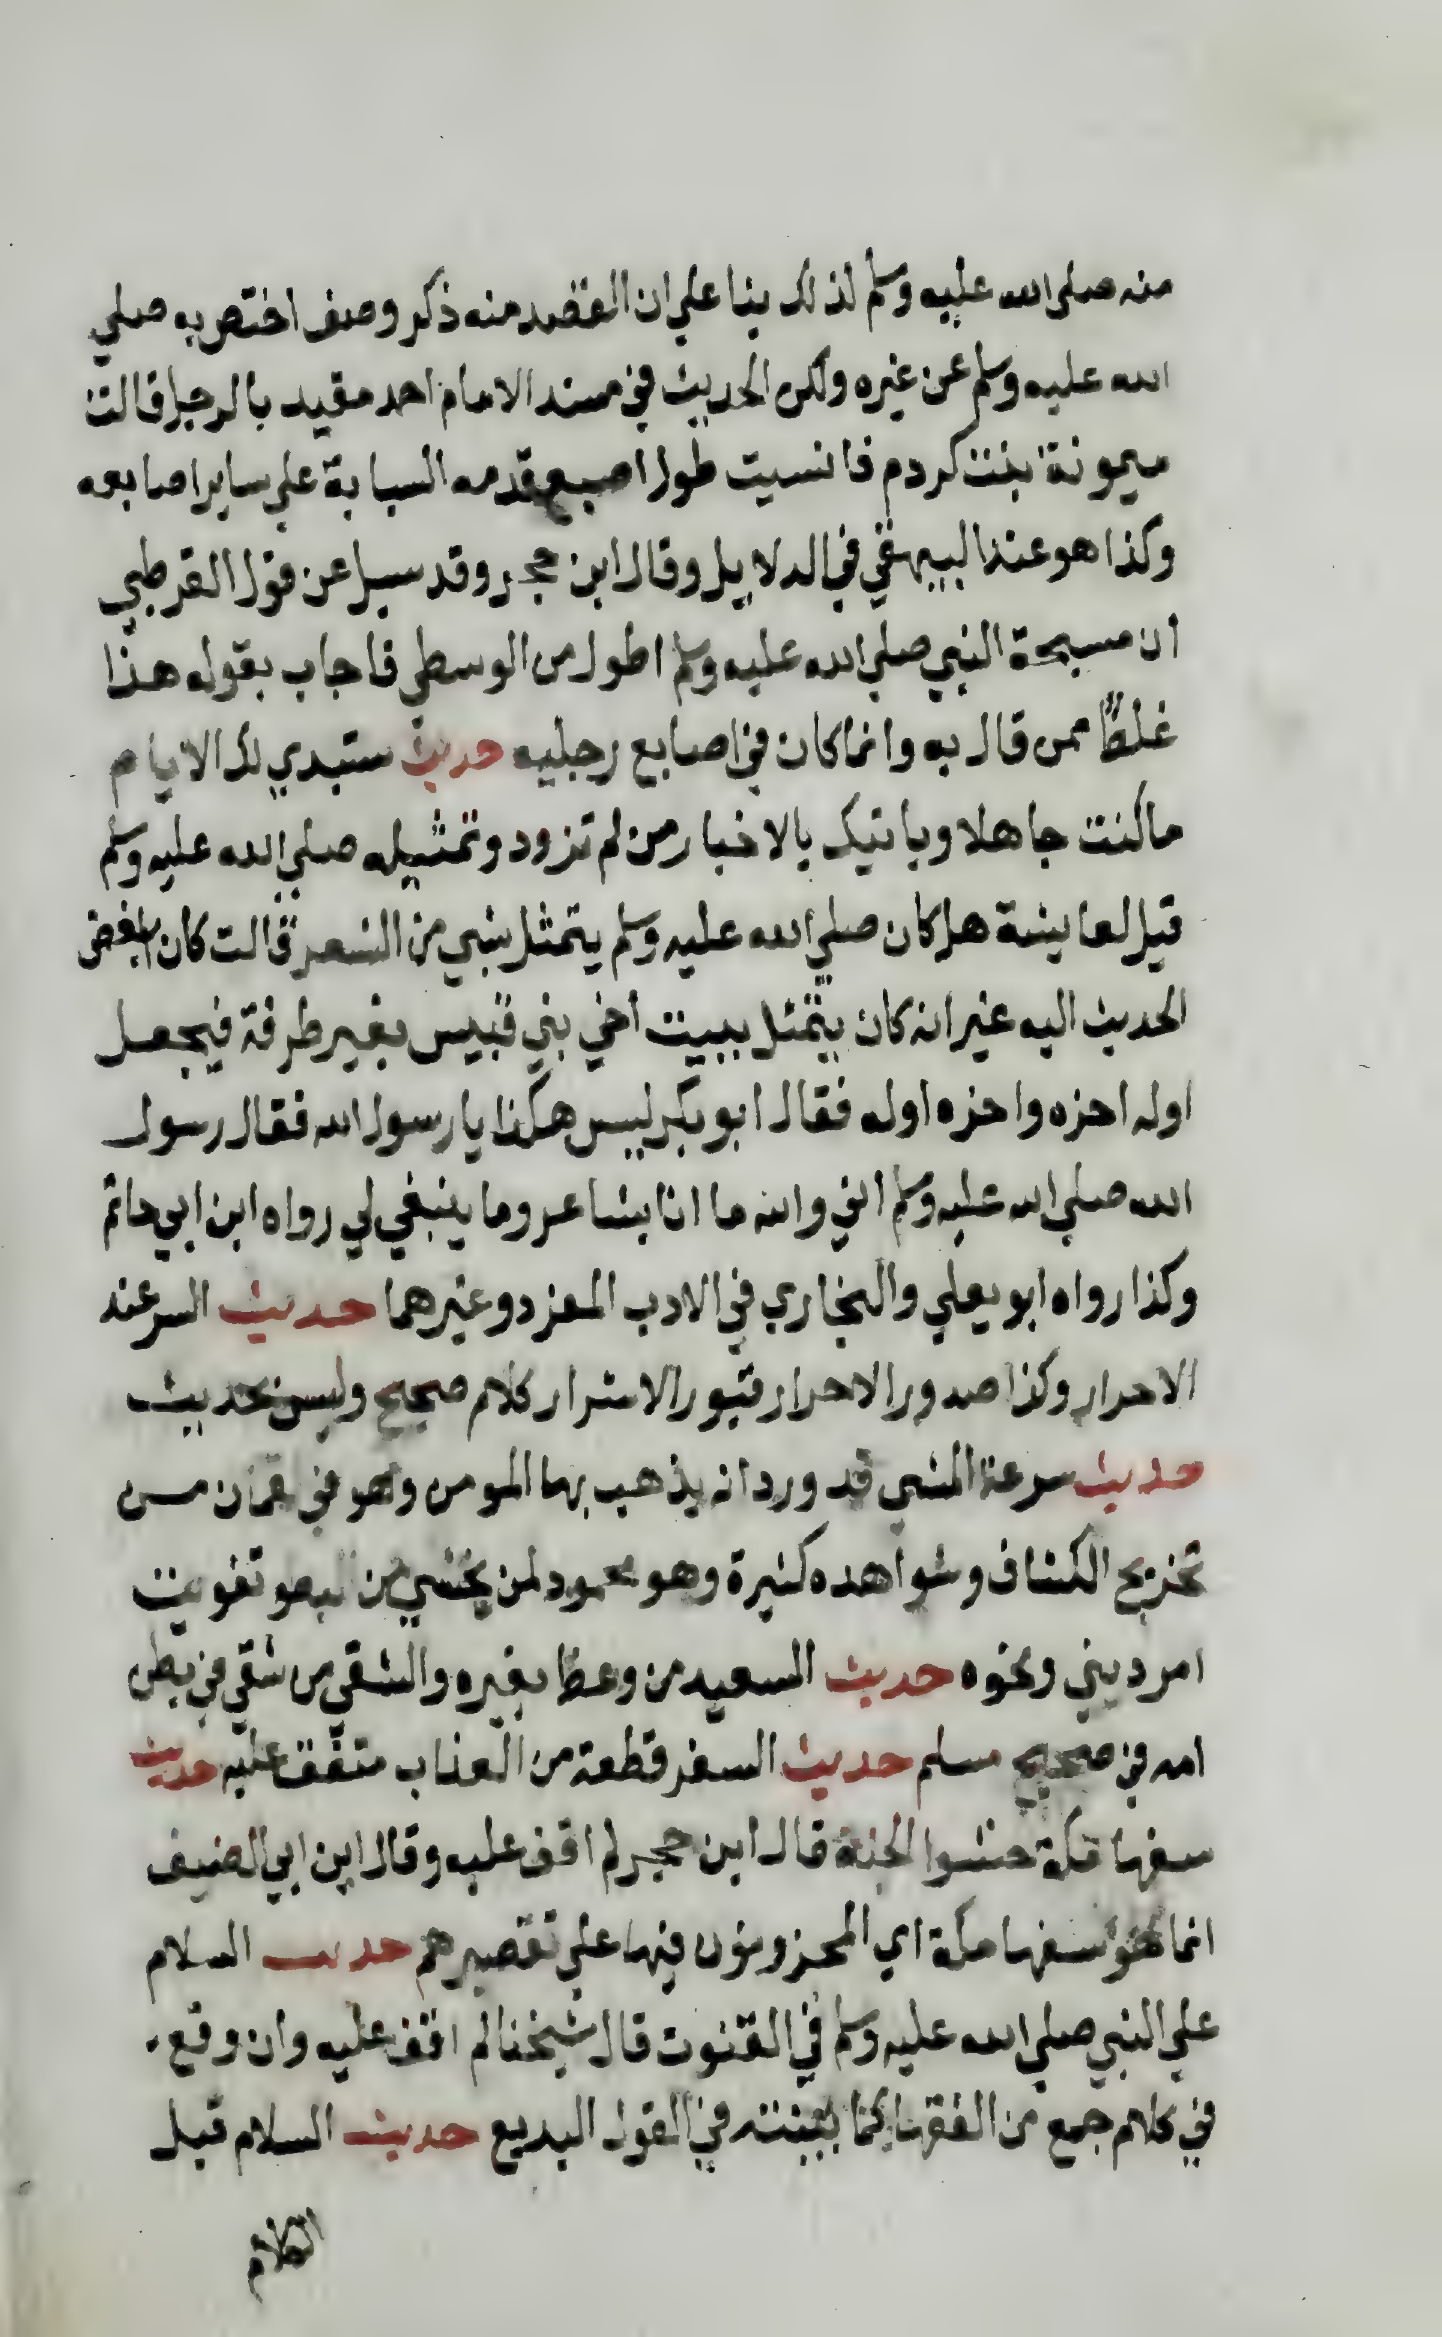 منه صلى الله عليه وسلم لذلك بنا علي ان القصد منه ذكر وصف اختص به صلي
الله عليه وسلم عن غيره ولكن الحديث في مسند الامام احمد مقيد بالرجل قالت
ميمونة بنت كردم فما نسيت طول اصبع قدمه السبابة علي ساير اصابعه
وكذا هو عند البيهقي في الدلايل وقال ابن حجر وقد سيل عن قول القرطبي
ان مسبحة النبي صلي الله عليه وسلم اطول من الوسطي فاجاب بقوله هذا
غلط ممن قال به وانما كان في اصابع رجليه حديث ستبدي لك الايام
ما كنت جاهلا وياتيك بالاخبار من لم تزود وتمثيله صلي الله عليه وسلم
قيل لعايشة هل كان صلي الله عليه وسلم يتمثل بشي من الشعر قالت كان ابغض
الحديث اليه غير انه كان يتمثل ببيت اخي بني قيس بغير طرفة فيجعل
اوله اخره واخره اوله فقال ابو بكر ليس هكذا يا رسول الله فقال رسول
الله صلي الله عليه وسلم اني والله ما انا بشاعر وما ينبغي لي رواه ابن ابي حاتم
وكذا رواه ابو يعلي والبخاري في الادب المفرد وغيرهما حديث السر عند
الاحرار وكذا صدور الاحرار قبور الاسرار كلام صحيح وليس بحديث
حديث سرعة المشي قد ورد انه يذهب بها المومن وهو في لقمان من
تخريج الكشاف وشواهده كثيرة وهو محمود لمن يخشي من البطو تفويت
امر ديني ونحوه حديث السعيد من وعظ بغيره والشقي من شقي في بطن
امه في صحيح مسلم حديث السفر قطعة من العذاب متفق عليه حديث
سفها مكة حشو الجنة قال ابن حجر لم اقف عليه وقال ابن ابي الصيف
انما هو اسفها مكة اي المحزونون فيها علي تقصيرهم حديث السلام
علي النبي صلي الله عليه وسلم في القنوت قال شيخنا لم اقف عليه وان وقع
في كلام جمع من الفقها كما بينته في القول البديع حديث السلام قبل
الكلام